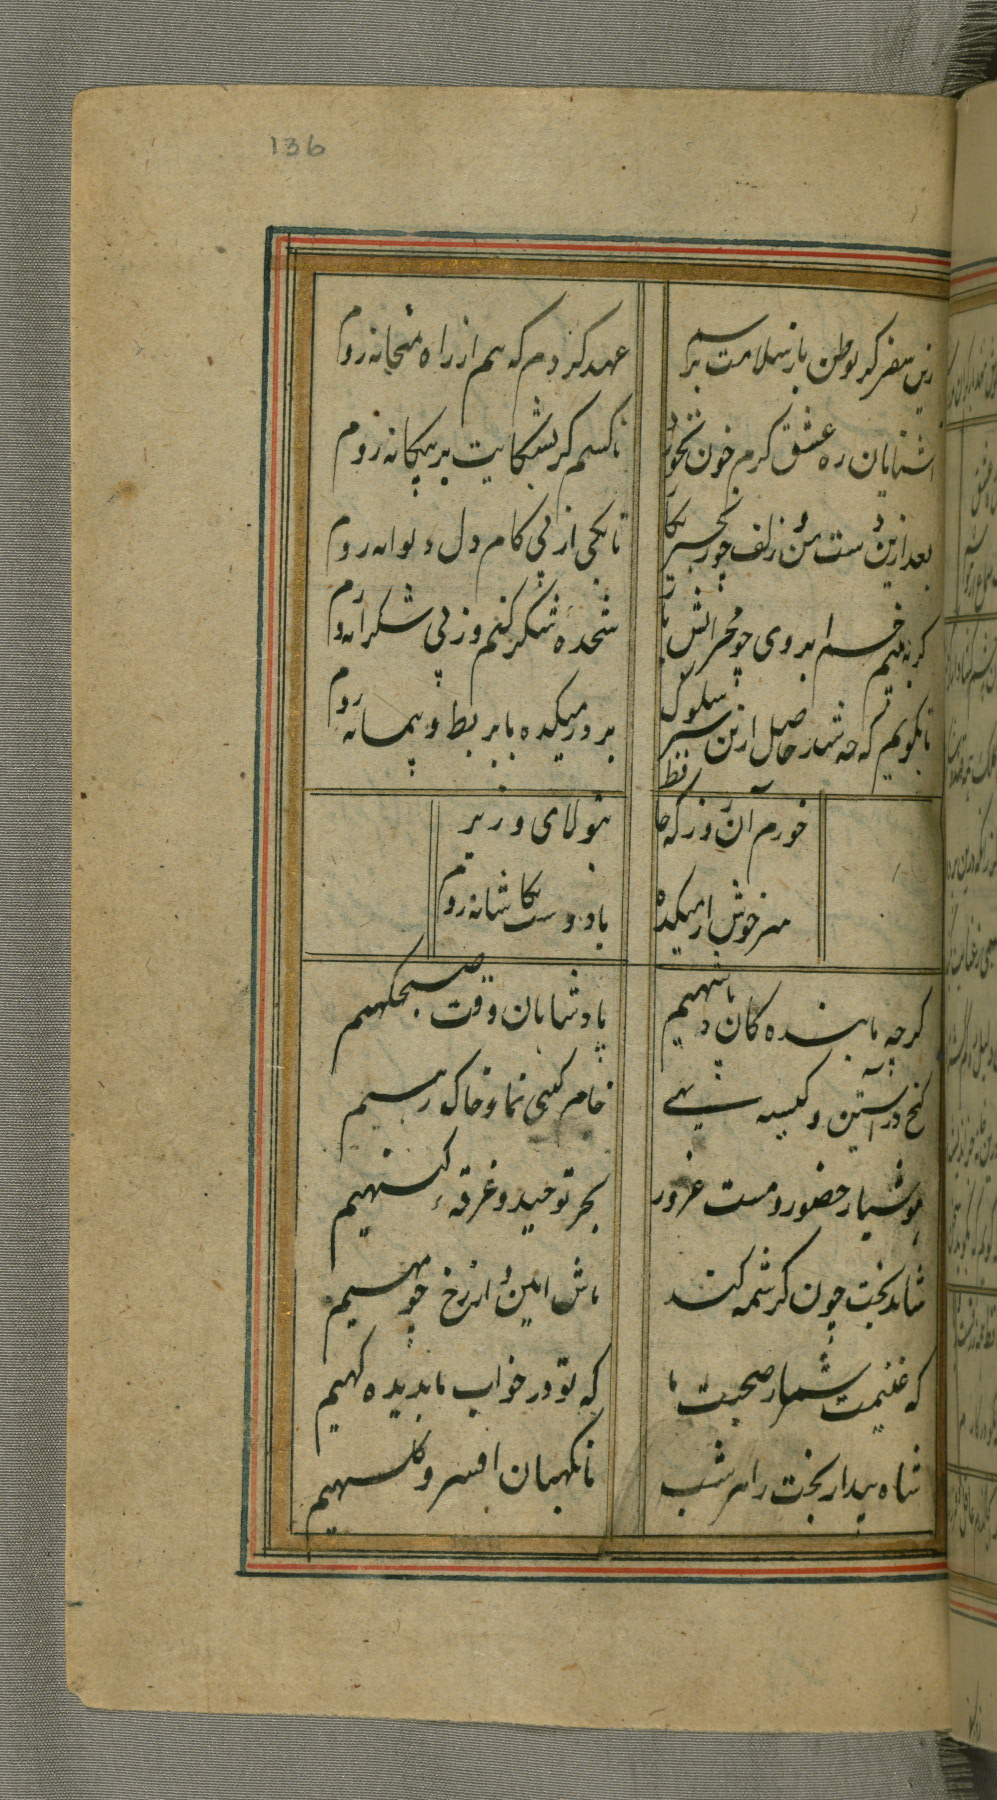 136
زین سفر گر بوطن باز سلامت برسم عهد کردم که هم از راه میخانه روم
آشنایان ره عشق گرم خون بخورند ناکسم گر بشکایت بر بیکانه روم
بعد ازین دست من و زلف چو زنجیر نکار تا بکی از پی کام دل دیوانه روم
گر به بینم خم ابروی چو محرابش باز سجده شکر کنم وز پی شکرانه روم
تا بگویم که چه شد حاصل ازین سیر سلوک بدر میکده با بربط و پیمانه روم
خورم آن روز که حافظ بتولای وزیر
سرخوش از میکده با دوست بکاشانه روم
گرچه ما بنده گان پادشهیم پادشاهان وقت صبحگهیم
گنج در آستین و کیسه تهی جام گیتی نما و خاک رهیم
هوشیار حضور و مست غرور بحر توحید و غرقه گنهیم
شاهد بخت چون کرشمه کند ماش آیین رخ چو مهیم
که غنیمت شمار صحبت ما که تو در خواب ما بدیده گهیم
شاه بیدار بخت را هر شب ما نگهبان افسر و کلهیم